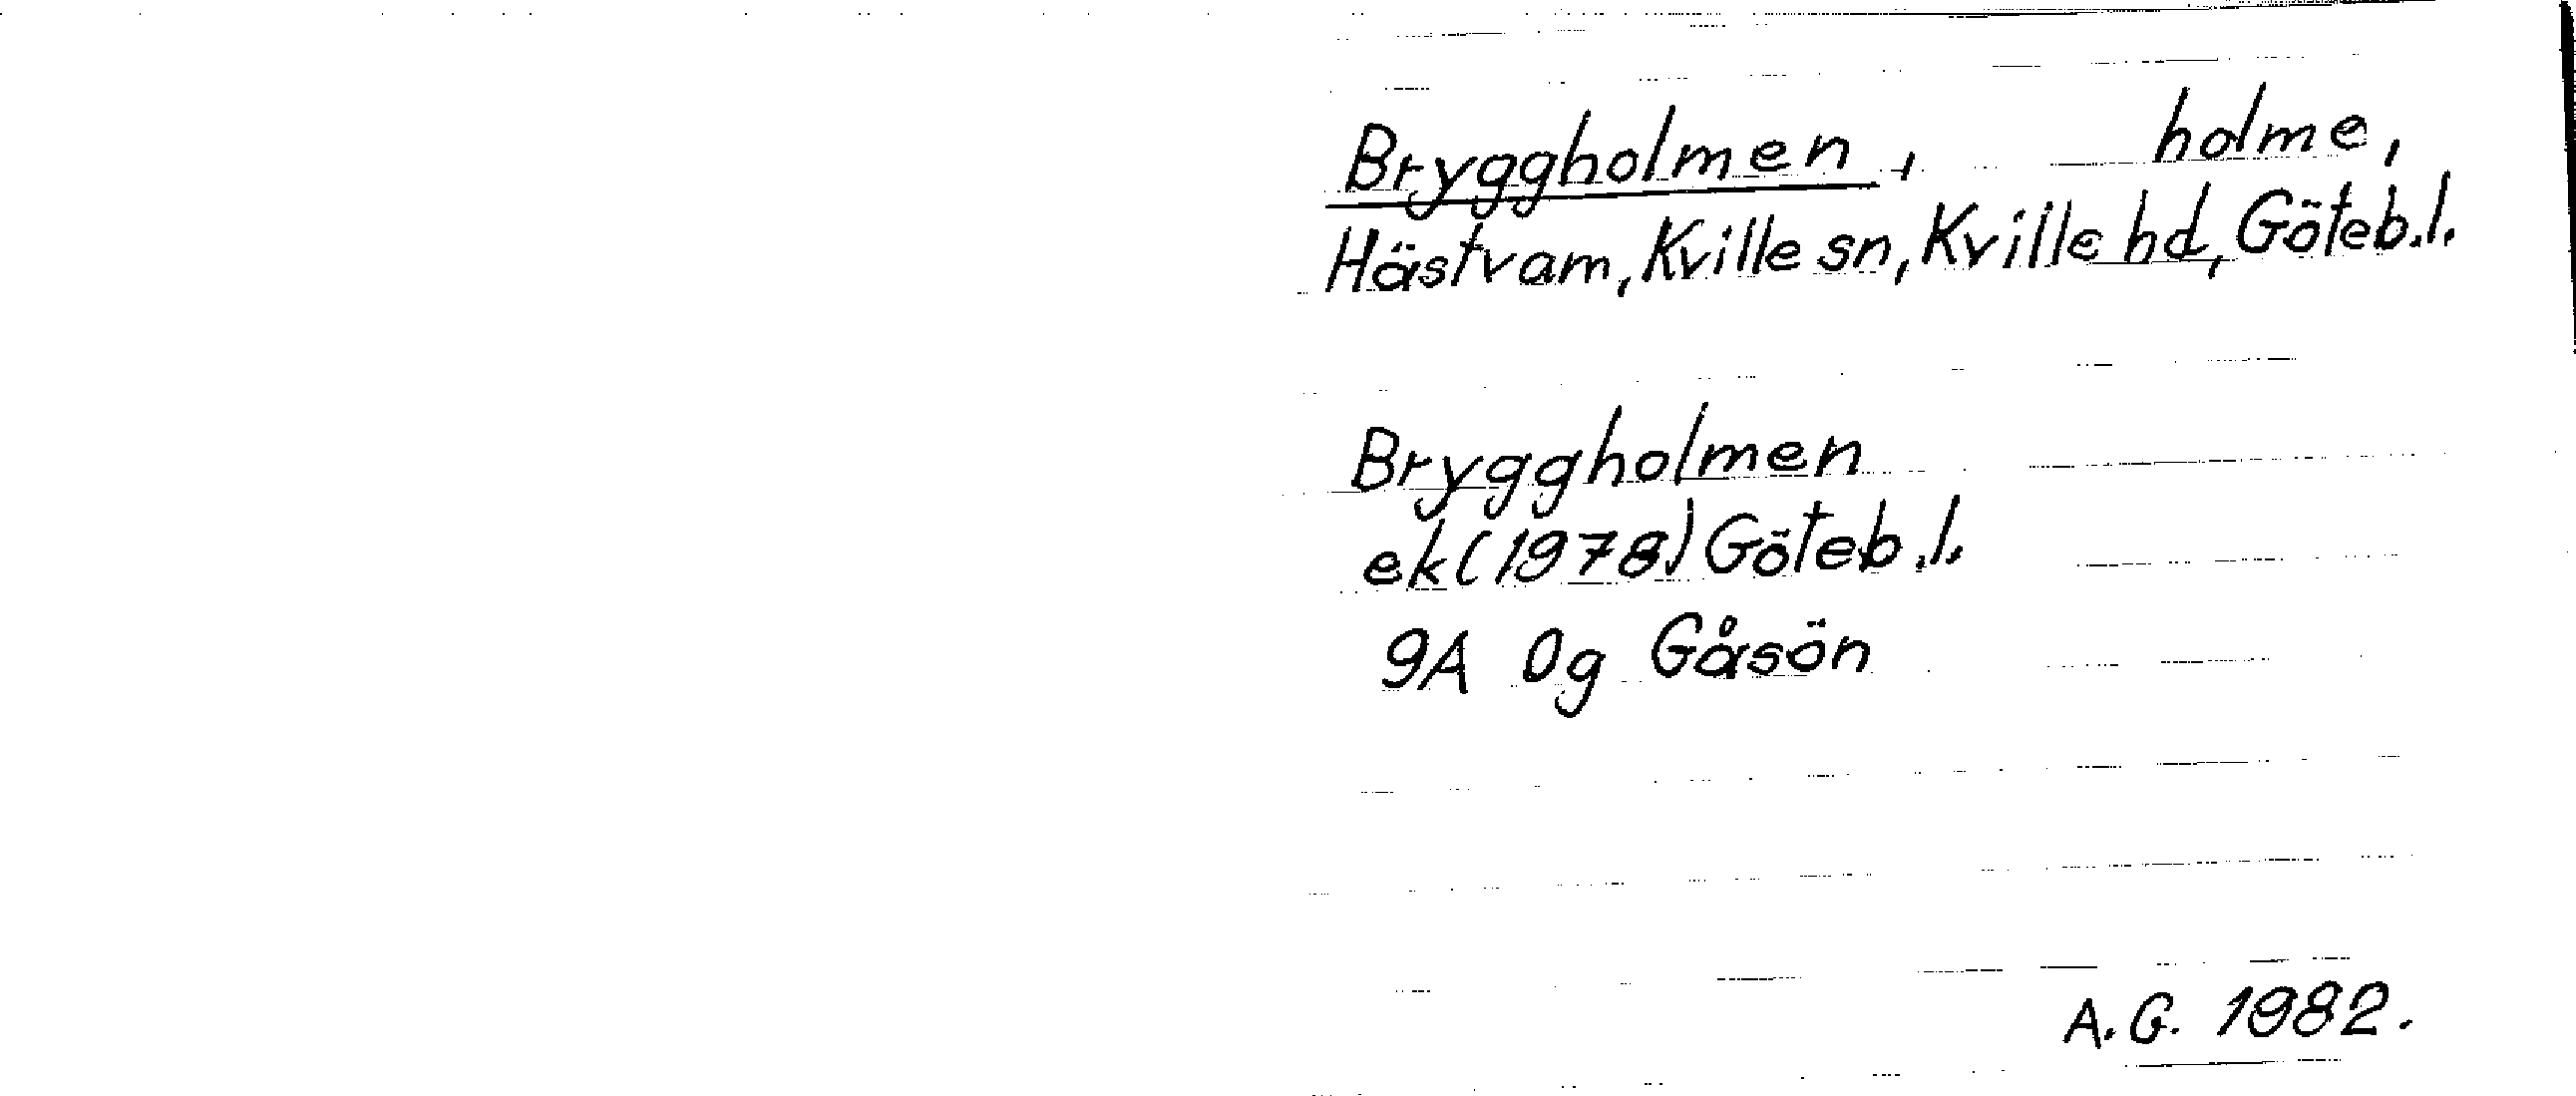 Bryggholmen, holme,
Hästvam, Kville sn, Kville hd, Göteb.l.
Bryggholmen
ek (1978) Göteb.l.
9A 0g Gåsön
A.G. 1982.